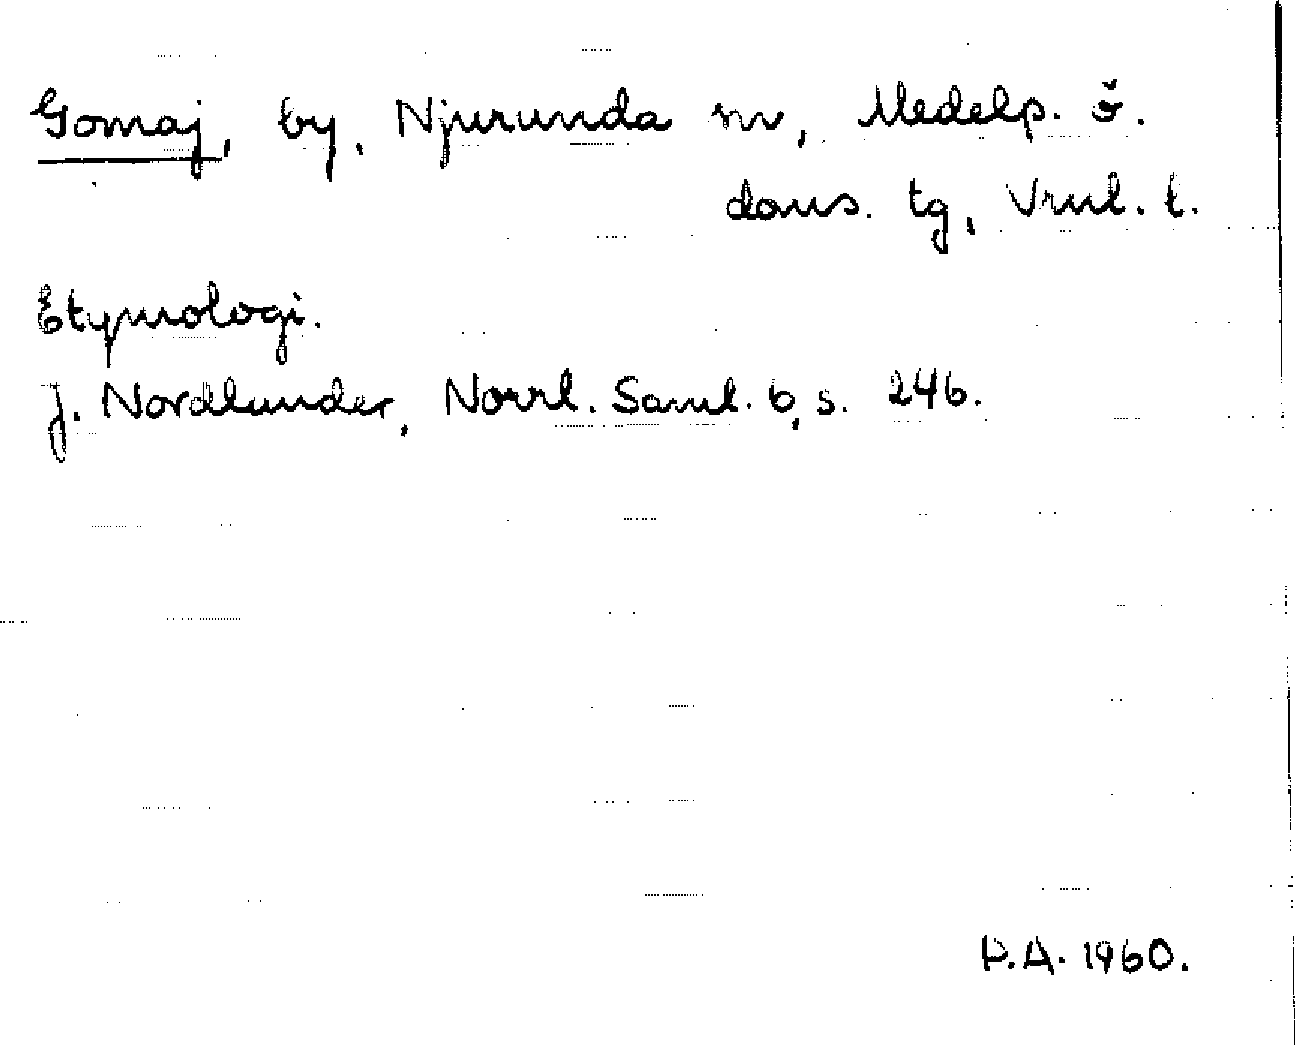 Gomaj, by, Njurunda sn, Medelp. ö.
doms. tg, Vrnl. l.
Etymologi.
J. Nordlander, Norrl. Saml. 6, s. 246.
P.A. 1960.